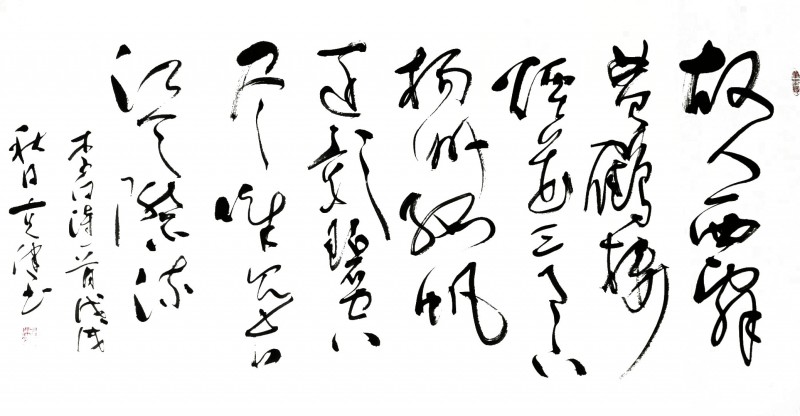 故人西辭
黄鶴樓
煙花三月下
揚州孤帆
遠影碧空
尽唯見長
江天際流
李白詩一首戊戌
秋日書